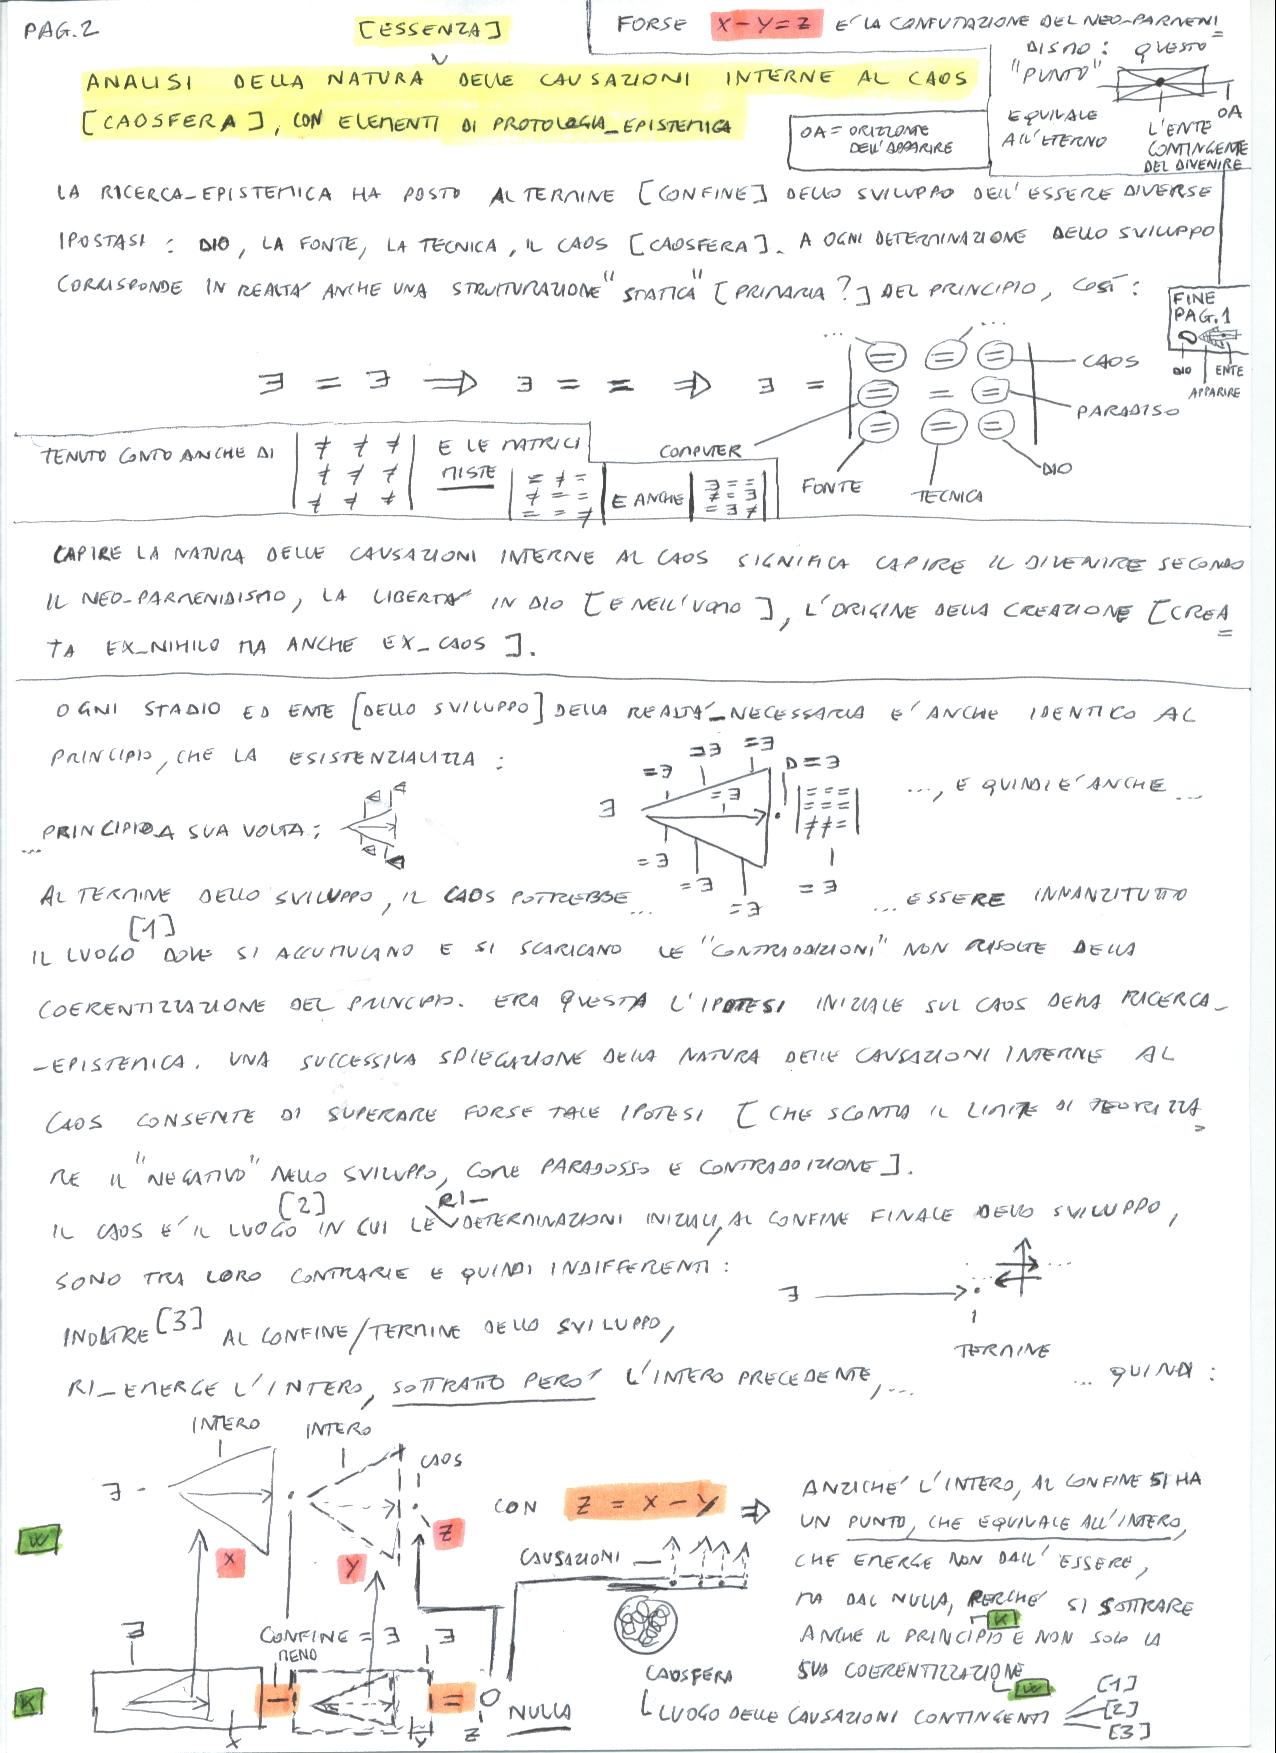 PAG. 2
[ESSENZA]
FORSE X - Y = Z E' LA CONFUTAZIONE DEL NEO-PARMENI
DISMO : QUESTO
"PUNTO"
EQUIVALE
ALL'ETERNO
OA
L'ENTE
CONTINGENTE
DEL DIVENIRE
ANALISI DELLA NATURA DELLE CAUSAZIONI INTERNE AL CAOS
[CAOSFERA], CON ELEMENTI DI PROTOLOGIA_EPISTEMICA
OA = ORIZZONTE
DELL'APPARIRE
LA RICERCA_EPISTEMICA HA POSTO AL TERMINE [CONFINE] DELLO SVILUPPO DELL'ESSERE DIVERSE
IPOSTASI : DIO, LA FONTE, LA TECNICA, IL CAOS [CAOSFERA]. A OGNI DETERMINAZIONE DELLO SVILUPPO
CORRISPONDE IN REALTA' ANCHE UNA STRUTTURAZIONE "STATICA" [PRIMARIA ?] DEL PRINCIPIO, COSÌ :
FINE
PAG. 1
DIO
ENTE
APPARIRE
∃ = ∃ ⇒ ∃ = = ⇒ ∃ =
... ...
= = =
= = =
= = =
CAOS
PARADISO
DIO
TECNICA
FONTE
COMPUTER
TENUTO CONTO ANCHE DI
≠ ≠ ≠
≠ ≠ ≠
≠ ≠ ≠
E LE MATRICI
MISTE
= ≠ =
≠ = =
= = ≠
E ANCHE
∃ = =
≠ = ∃
= ∃ ≠
CAPIRE LA NATURA DELLE CAUSAZIONI INTERNE AL CAOS SIGNIFICA CAPIRE IL DIVENIRE SECONDO
IL NEO-PARMENIDISMO, LA LIBERTA' IN DIO [E NELL'UOMO], L'ORIGINE DELLA CREAZIONE [CREA
TA EX_NIHILO MA ANCHE EX_CAOS ].
OGNI STADIO ED ENTE [DELLO SVILUPPO] DELLA REALTA'_NECESSARIA E' ANCHE IDENTICO AL
PRINCIPIO, CHE LA ESISTENZIALIZZA :
∃
=∃ =∃ =∃
=∃
D = ∃
= = =
= = =
≠ ≠ =
= ∃
=∃ =∃ =∃
..., E QUINDI E' ANCHE ...
... PRINCIPIO A SUA VOLTA ;
AL TERMINE DELLO SVILUPPO, IL CAOS POTREBBE ...
... ESSERE INNANZITUTTO
[1]
IL LUOGO DOVE SI ACCUMULANO E SI SCARICANO LE "CONTRADDIZIONI" NON RISOLTE DELLA
COERENTIZZAZIONE DEL PRINCIPIO. ERA QUESTA L'IPOTESI INIZIALE SUL CAOS DELLA RICERCA_
_EPISTEMICA. UNA SUCCESSIVA SPIEGAZIONE DELLA NATURA DELLE CAUSAZIONI INTERNE AL
CAOS CONSENTE DI SUPERARE FORSE TALE IPOTESI [CHE SCONTA IL LIMITE DI TEORIZZA
RE IL "NEGATIVO" NELLO SVILUPPO, COME PARADOSSO E CONTRADDIZIONE].
[2] RI_
IL CAOS E' IL LUOGO IN CUI LE DETERMINAZIONI INIZIALI, AL CONFINE FINALE DELLO SVILUPPO,
SONO TRA LORO CONTRARIE E QUINDI INDIFFERENTI :
∃
TERMINE
INOLTRE [3] AL CONFINE/TERMINE DELLO SVILUPPO,
RI_EMERGE L'INTERO, SOTTRATTO PERO' L'INTERO PRECEDENTE, ...
... QUINDI :
INTERO
INTERO
CAOS
∃
W
X
Y
Z
CON Z = X - Y ⇒
CAUSAZIONI
CAOSFERA
LUOGO DELLE CAUSAZIONI CONTINGENTI
[1]
[2]
[3]
ANZICHE' L'INTERO, AL CONFINE SI HA
UN PUNTO, CHE EQUIVALE ALL'INTERO,
CHE EMERGE NON DALL'ESSERE,
MA DAL NULLA, PERCHE' SI SOTTRARE
K
ANCHE IL PRINCIPIO E NON SOLO LA
SUA COERENTIZZAZIONE
W
∃
CONFINE = ∃
∃
MENO
K
X
-
Y
=
Z
NULLA